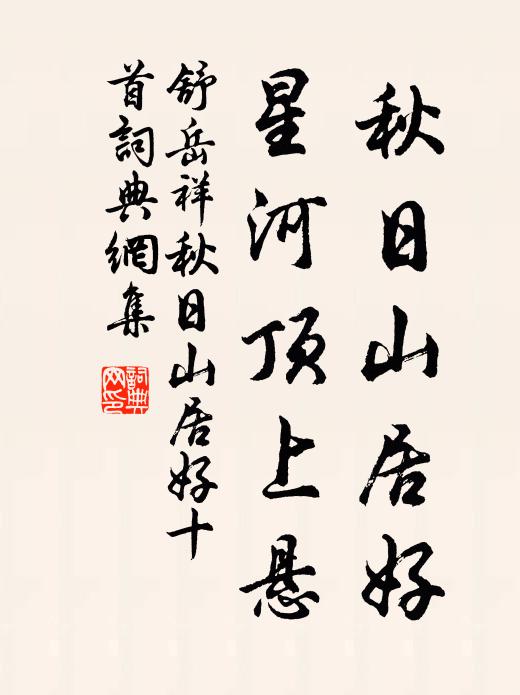 秋日山居好
星河顶上悬
舒岳祥秋日山居好十
首詞典網集
詞典网印